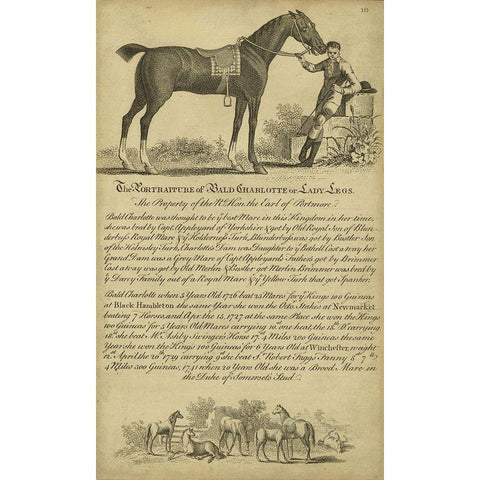 10
The Portraiture of Bald Charlotte or Lady Legs.
The Property of the Rt. Hon. the Earl of Portmore.
Bald Charlotte was thought to be ye best Mare in this Kingdom in her time,
she was bred by Capt. Appleyard of Yorkshire & got by Old Royal Son of Blun-
derbuss Royal Mare & ye Holderness Turk, Blunderbuss was got by Bustler Son
of the Helmsley Turk, Charlotte's Dam was Daughter to ye Bethell Cast a way her
Grand Dam was a Grey Mare of Capt. Appleyard's Father's got by Brimmer
Cast away was got by Old Merlin & Bustler got Merlin Brimmer was bred by
ye Darcy Family out of a Royal Mare & ye Yellow Turk that got Spanker.
Bald Charlotte when 5 Years Old 1726 beat 23 Mares for ye Kings 100 Guineas
at Black Hambleton the same Year she won the Oct. Stakes at Newmarket
beating 7 Horses, and Apr. the 15. 1727 at the same Place she won the Kings
100 Guineas for 5 Years Old Mares carrying 10st. one heat, the 18th. carrying
18st. she beat Mr. Ashby Swinger's Horse 17st. 4 Miles 200 Guineas the same
Year she won the Kings 100 Guineas for 6 Years Old at Winchester, weight
12st. April the 20th 1729 carrying 9st. she beat Sr. Robert Fagg's Fanny 8st 7lb
4 Miles 300 Guineas, 1741 when 20 Years Old she was a Brood Mare in
the Duke of Somerset's Stud.